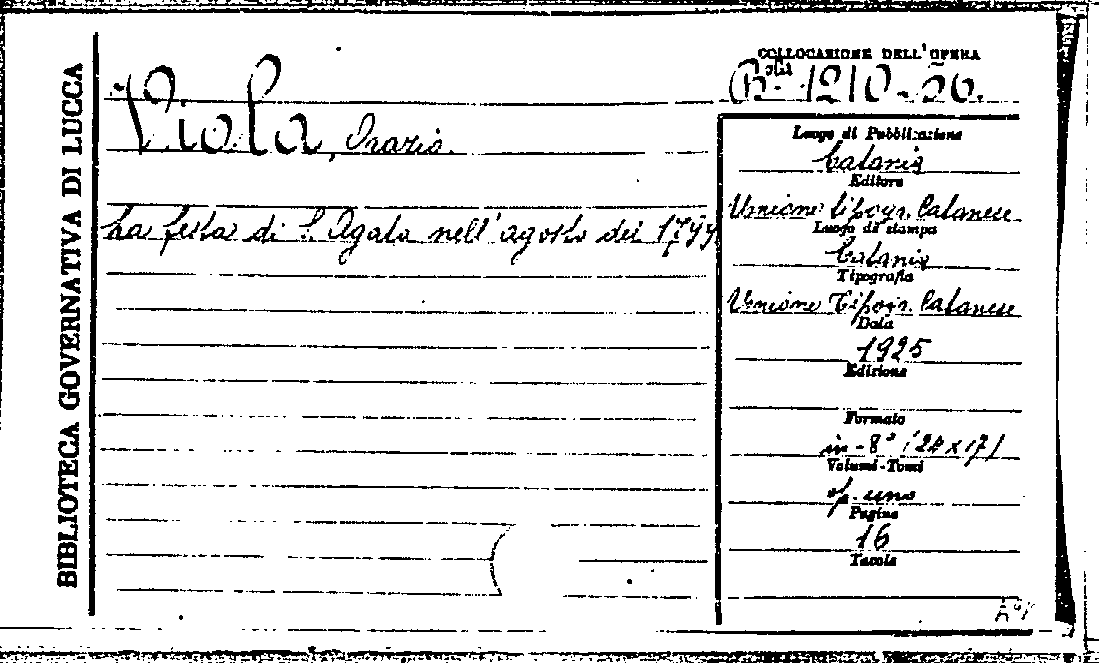 BIBLIOTECA GOVERNATIVA DI LUCCA
COLLOCAZIONE DELL'OPERA
Viola, Orazio.
La festa di S. Agata nell'agosto del 1799
Luogo di Pubblicazione
Catania
Editore
Unione tipogr. Catanese
Luogo di stampa
Catania
Tipografia
Unione Tipogr. Catanese
Data
1925
Edizione
Formato
in-8° (24x17)
Volumi-Tomi
uno
Pagine
16
Tavole